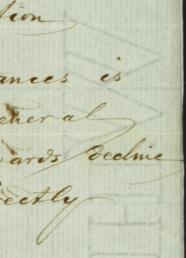 tion
ances is
eneral
wards decline
rectly